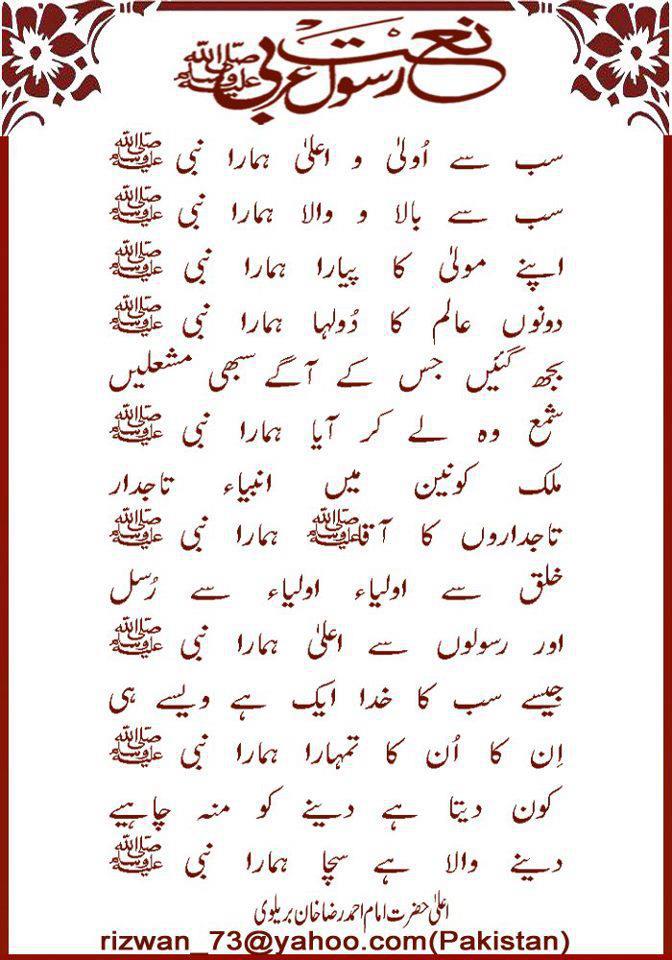 نعت رسول عربی ﷺ
سب سے اُولیٰ و اعلیٰ ہمارا نبی ﷺ
سب سے بالا و والا ہمارا نبی ﷺ
اپنے مولیٰ کا پیارا ہمارا نبی ﷺ
دونوں عالم کا دُولہا ہمارا نبی ﷺ
بجھ گئیں جس کے آگے سبھی مشعلیں
شمع وہ لے کر آیا ہمارا نبی ﷺ
ملک کونین میں انبیاء تاجدار
تاجداروں کا آقا ﷺ ہمارا نبی ﷺ
خلق سے اولیاء اولیاء سے رُسل
اور رسولوں سے اعلیٰ ہمارا نبی ﷺ
جیسے سب کا خدا ایک ہے ویسے ہی
اِن کا اُن کا تمہارا ہمارا نبی ﷺ
کون دیتا ہے دینے کو منہ چاہیے
دینے والا ہے سچا ہمارا نبی ﷺ
اعلیٰ حضرت امام احمد رضا خان بریلوی
rizwan_73@yahoo.com(Pakistan)